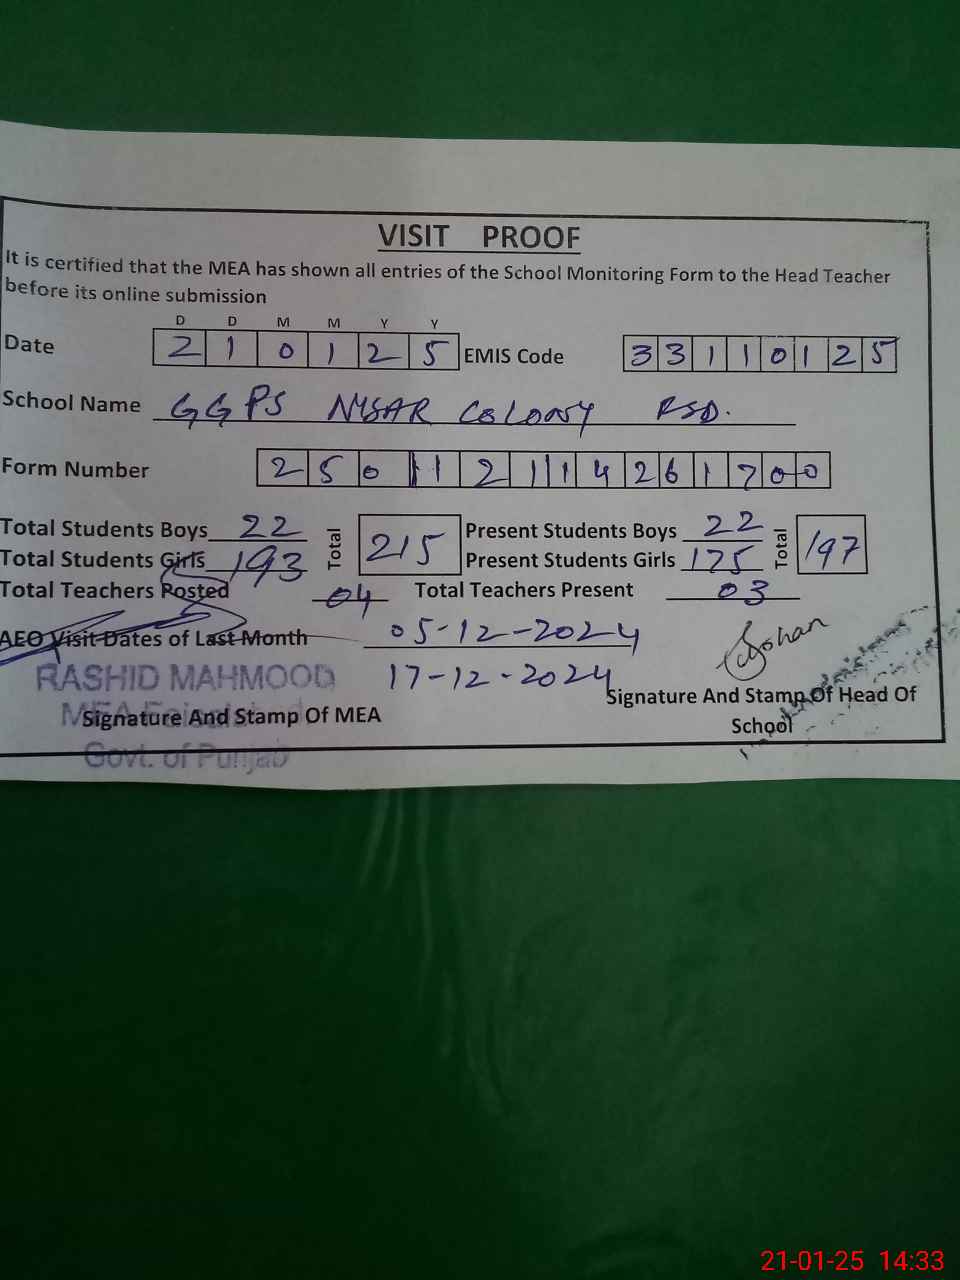 VISIT PROOF
It is certified that the MEA has shown all entries of the School Monitoring Form to the Head Teacher
before its online submission
D D M M Y Y
Date 2 1 0 1 2 5 EMIS Code 3 3 1 1 0 1 2 5
School Name GGPS NISAR COLONY FSD.
Form Number 2 5 0 1 1 2 1 1 4 2 6 1 7 0 0
Total Students Boys 22 Total 215 Present Students Boys 22 Total 197
Total Students Girls 193 Present Students Girls 175
Total Teachers Posted 04 Total Teachers Present 03
AEO Visit Dates of Last Month 05-12-2024
17-12-2024
RASHID MAHMOOD
MEA Faisalabad
Govt. of Punjab
Signature And Stamp Of MEA
Signature And Stamp Of Head Of
School
21-01-25 14:33